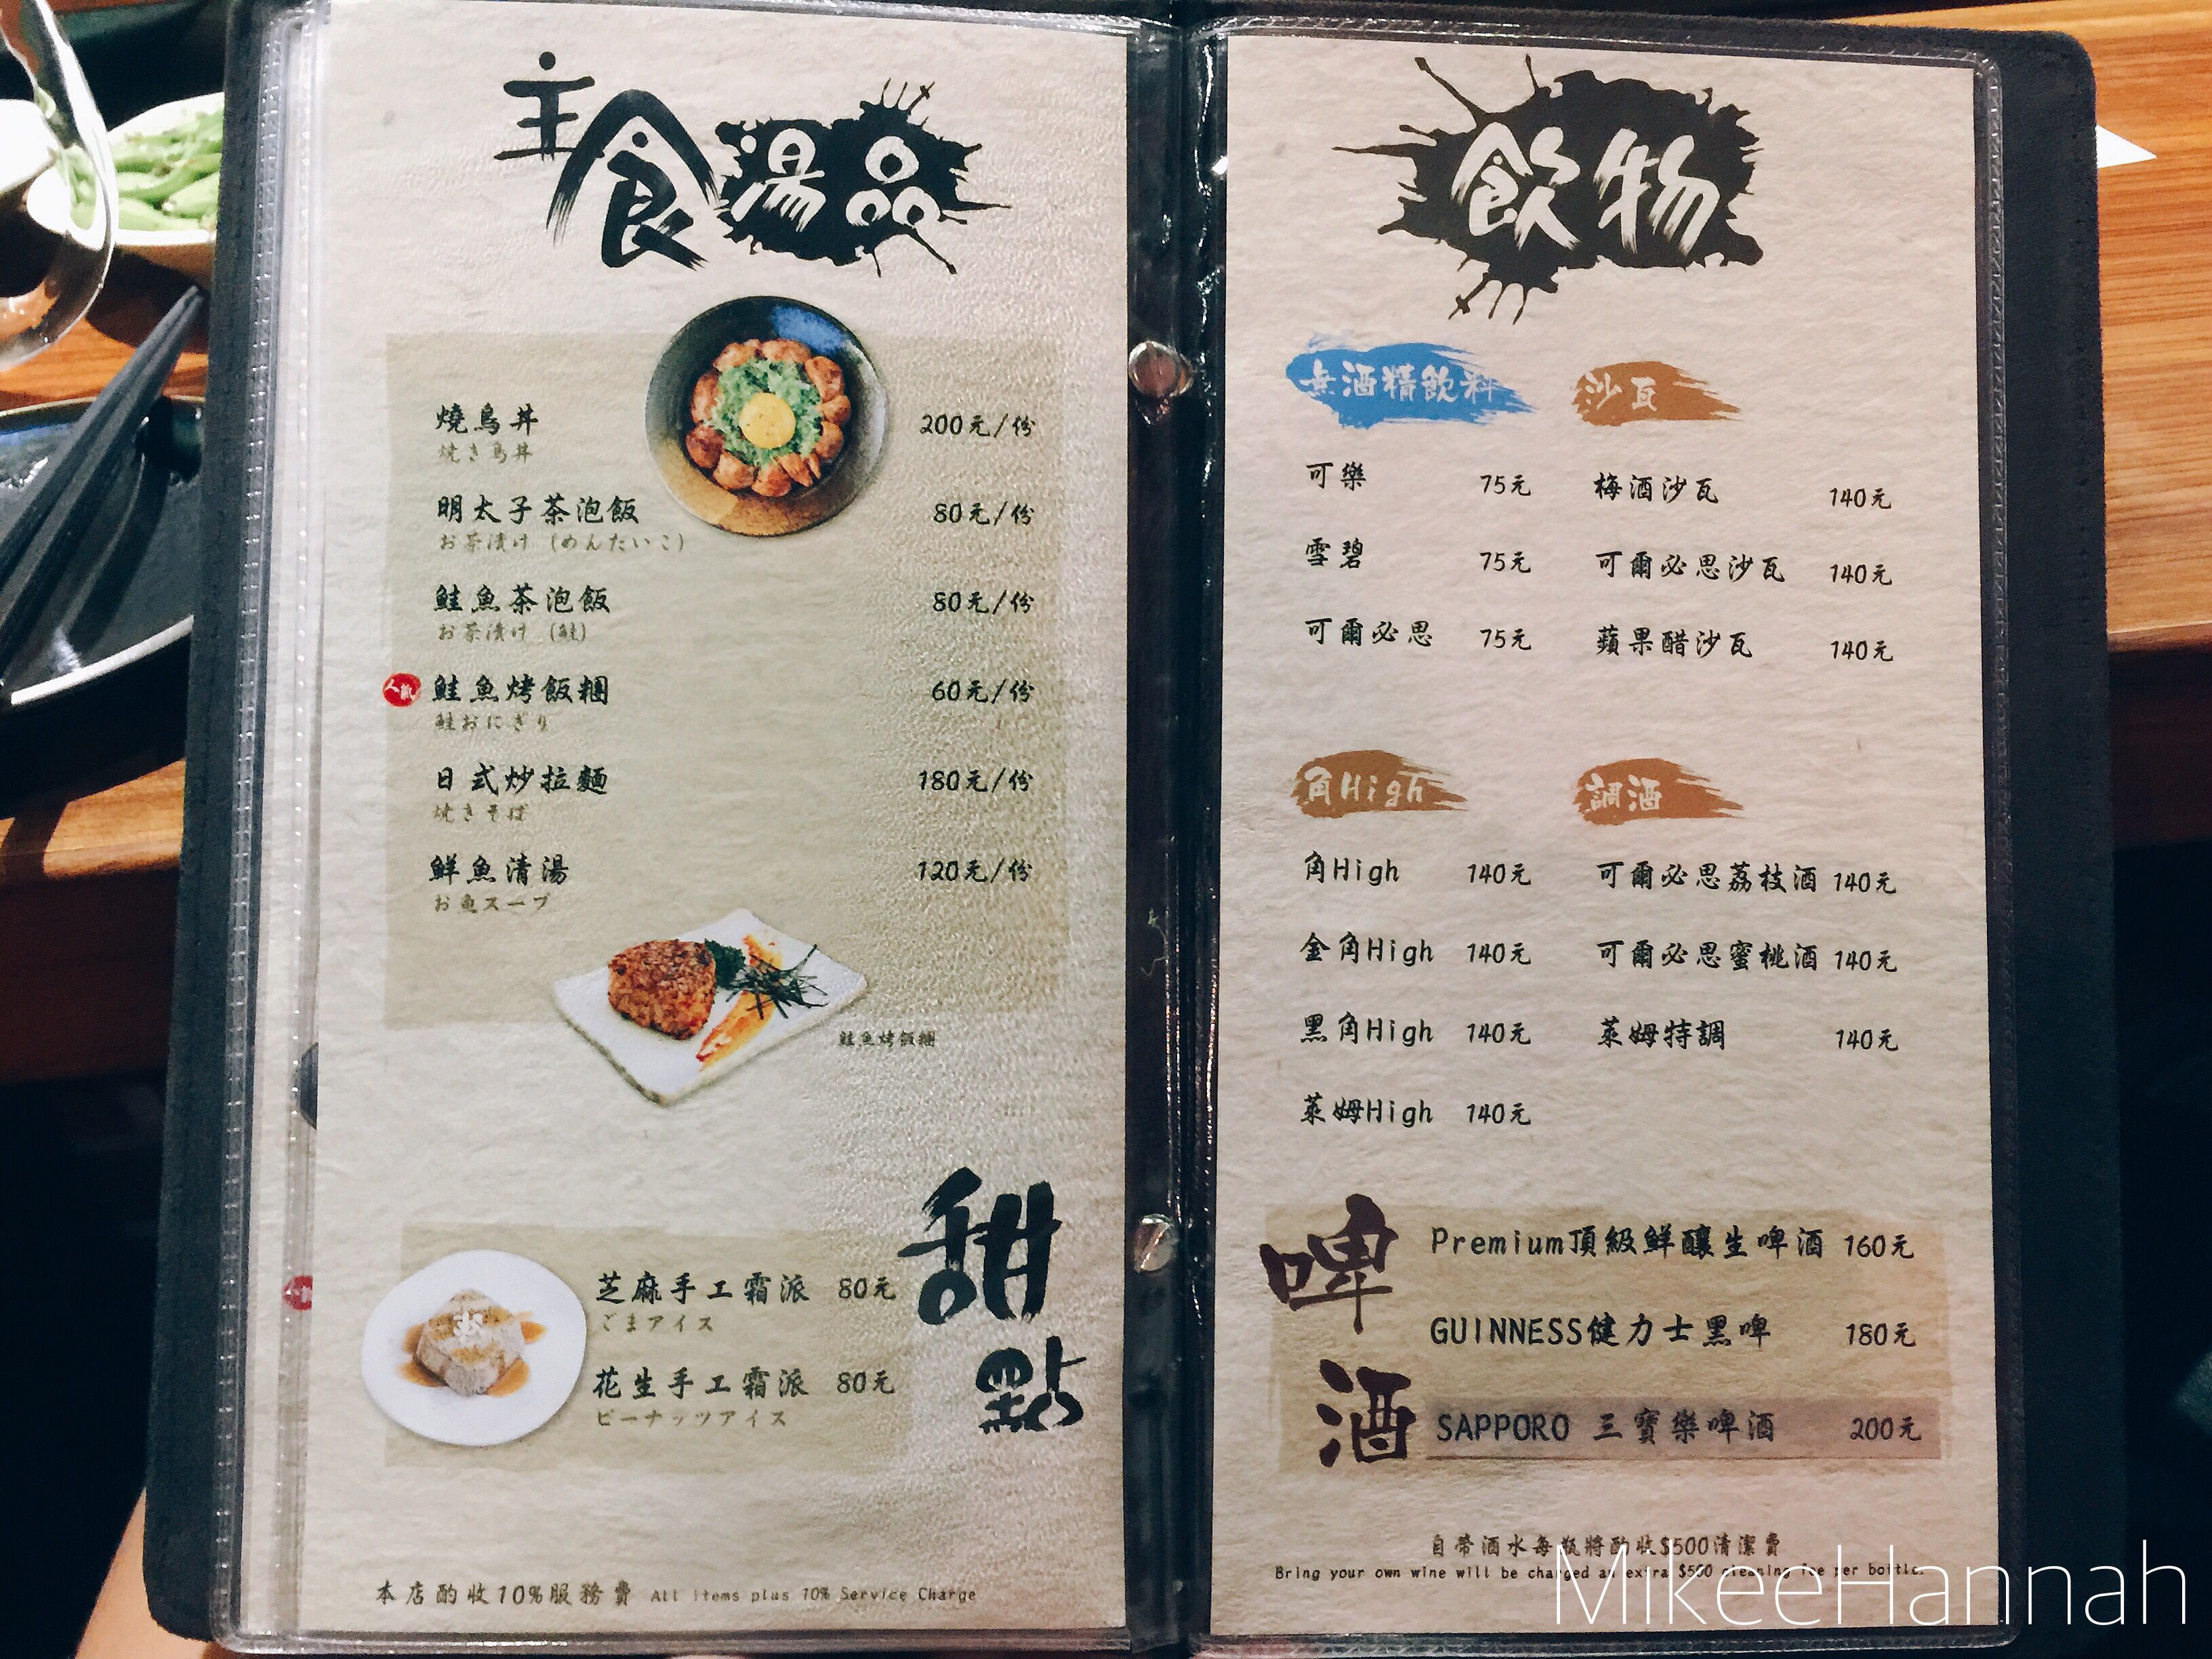 主食湯品
燒鳥丼 200元/份
焼き鳥丼
明太子茶泡飯 80元/份
お茶漬け (めんたいこ)
鮭魚茶泡飯 80元/份
お茶漬け (鮭)
人氣 鮭魚烤飯糰 60元/份
鮭おにぎり
日式炒拉麵 180元/份
焼きそば
鮮魚清湯 120元/份
お魚スープ
鮭魚烤飯糰
甜點
芝麻手工霜派 80元
ごまアイス
花生手工霜派 80元
ピーナッツアイス
本店酌收10%服務費 All items plus 10% Service Charge
飲物
無酒精飲料
可樂 75元
雪碧 75元
可爾必思 75元
沙瓦
梅酒沙瓦 140元
可爾必思沙瓦 140元
蘋果醋沙瓦 140元
角High
角High 140元
金角High 140元
黑角High 140元
萊姆High 140元
調酒
可爾必思荔枝酒 140元
可爾必思蜜桃酒 140元
萊姆特調 140元
啤酒
Premium頂級鮮釀生啤酒 160元
GUINNESS健力士黑啤 180元
SAPPORO 三寶樂啤酒 200元
自帶酒水每瓶將酌收$500清潔費
Bring your own wine will be charged an extra $500 cleaning fee per bottle.
MikeeHannah